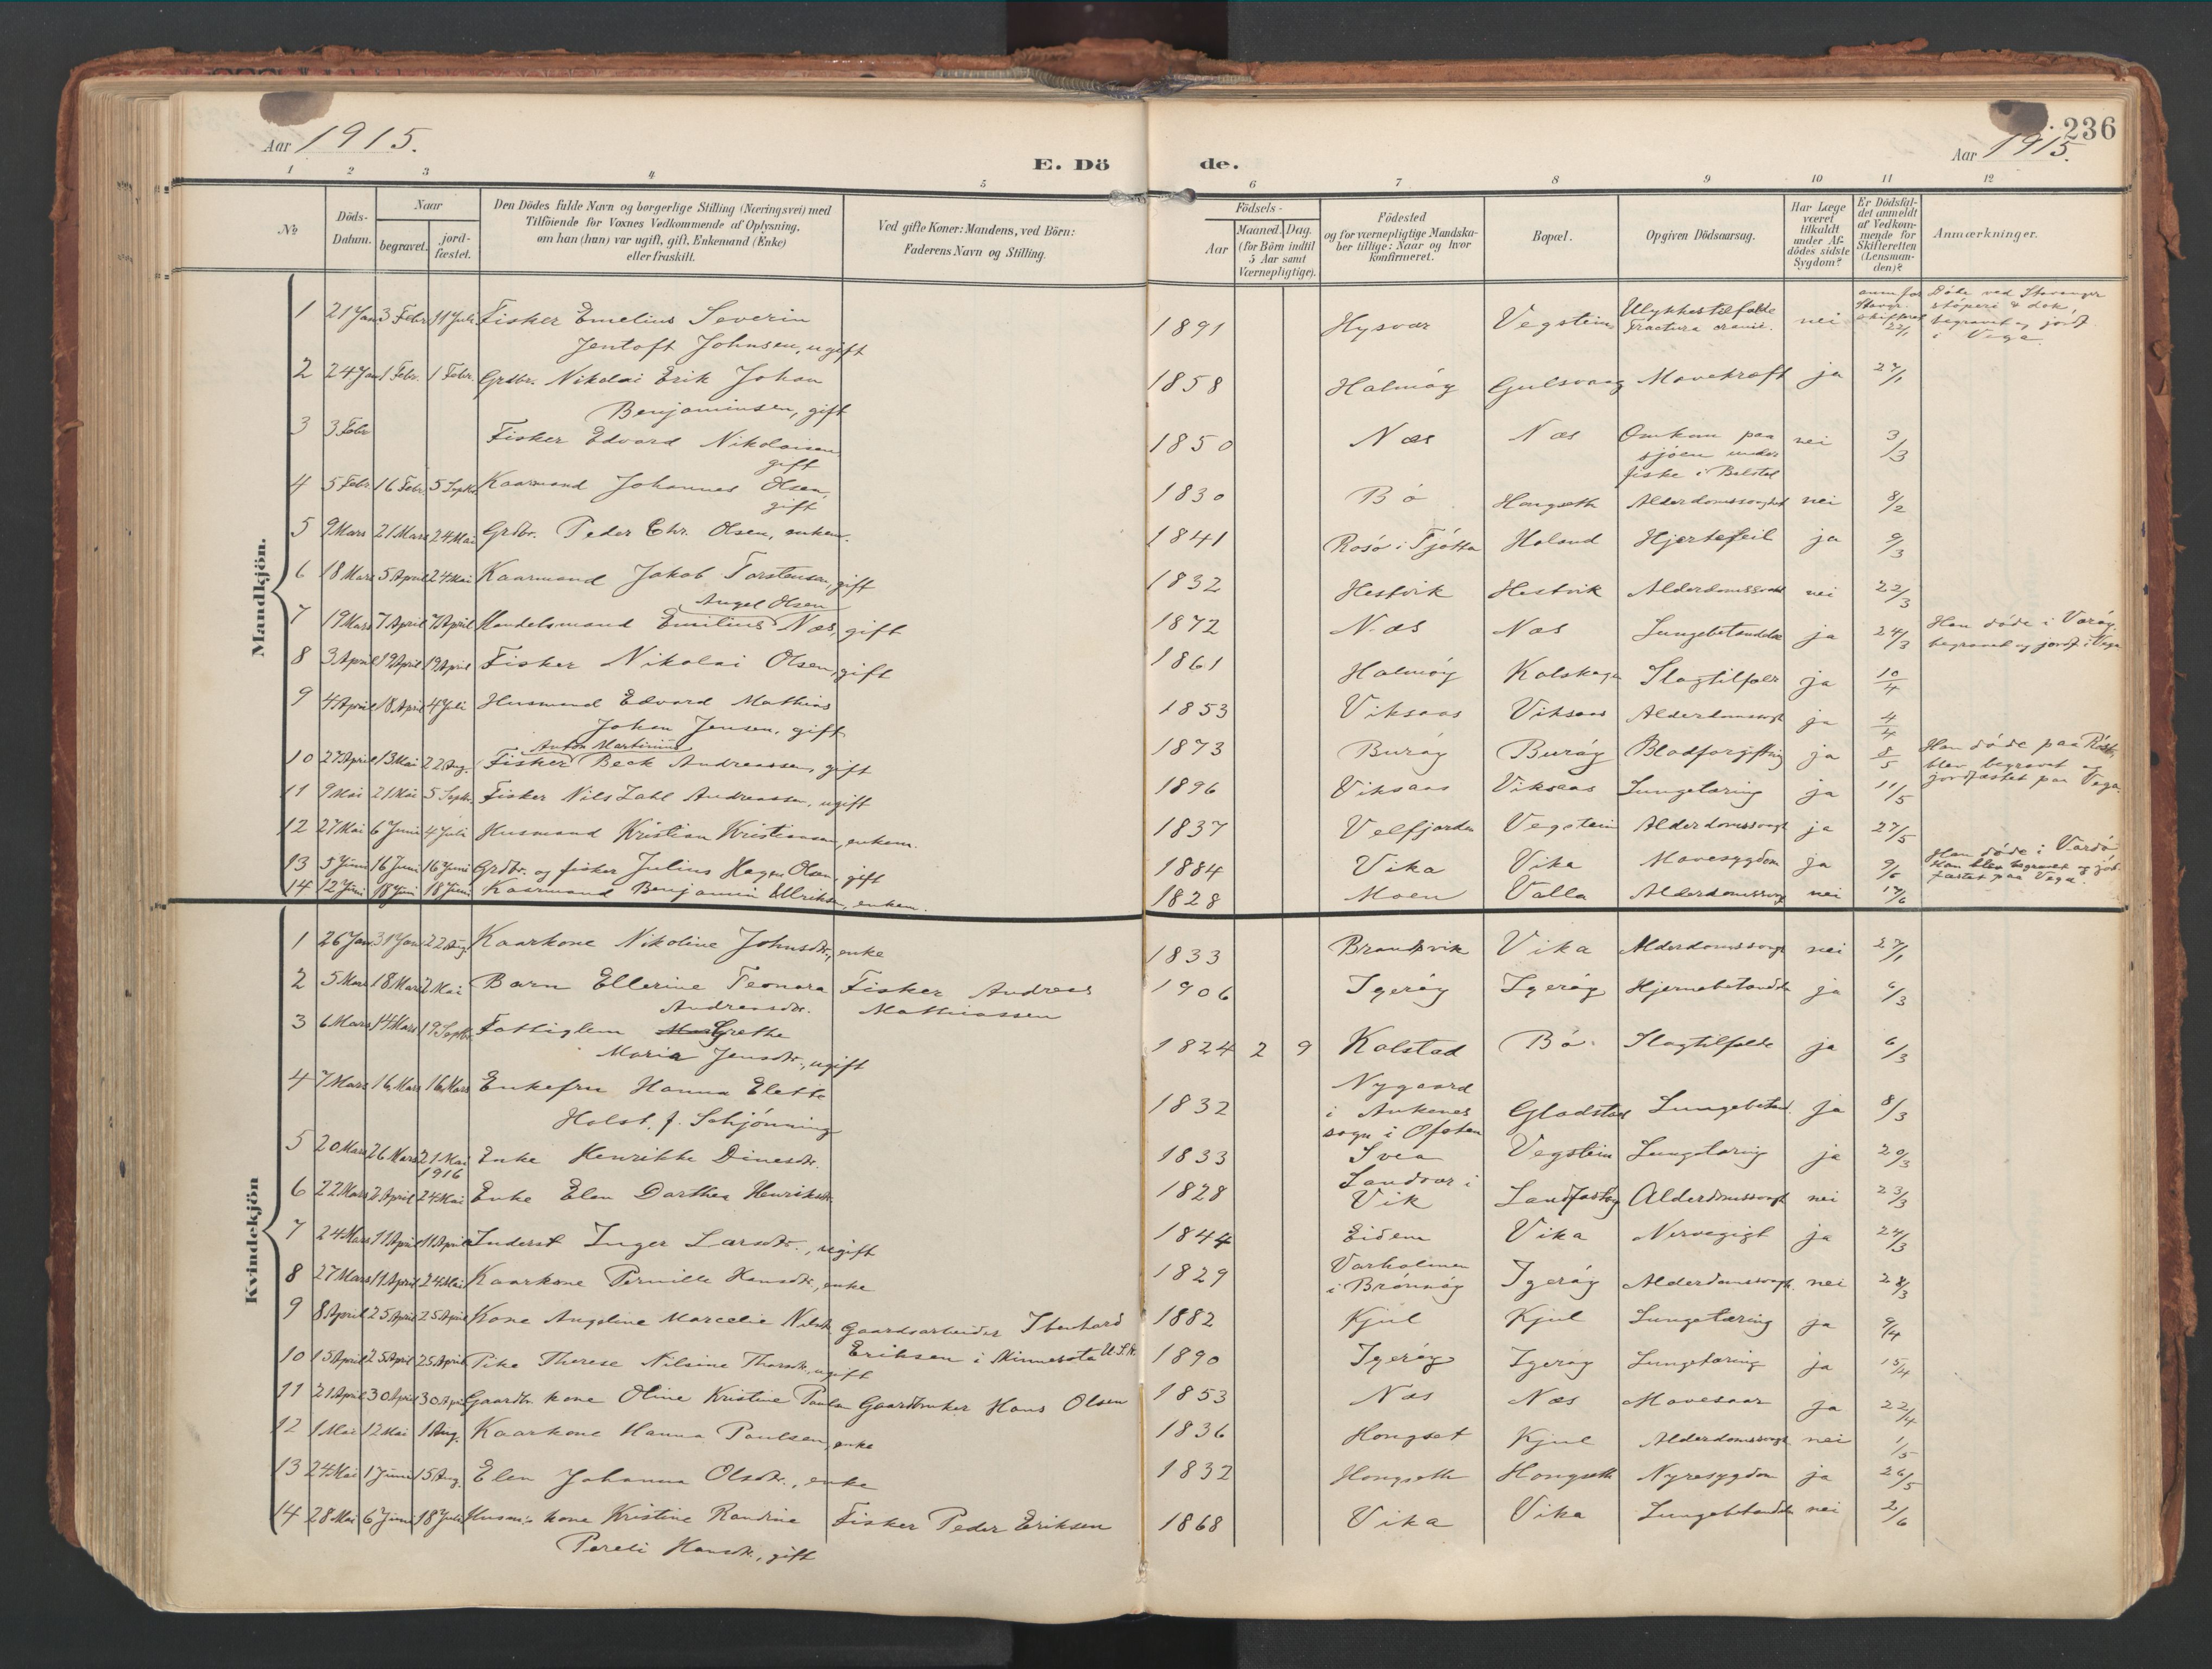 236
Aar 1915.
E. Dö de.
Aar 1915.
1 2 3 4 5 6 7 8 9 10 11 12
No
Döds-Datum.
Naar
begravet.
jord-fæstet.
Den Dödes fulde Navn og borgerlige Stilling (Næringsvei) med
Tilföiende for Voxnes Vedkommende af Oplysning,
om han (hun) var ugift, gift, Enkemand (Enke)
eller fraskilt.
Ved gifte Koner: Mandens, ved Börn:
Faderens Navn og Stilling.
Födsels-
Aar
Maaned. Dag.
(for Börn indtil
5 Aar samt
Værnepligtige).
Födested
og for værnepligtige Mandska-
ber tillige: Naar og hvor
konfirmeret.
Bopæl.
Opgiven Dödsaarsag.
Har Læge
været
tilkaldt
under Af-
dödes sidste
Sygdom?
Er Dödsfal-
det anmeldt
af Vedkom-
mende for
Skifteretten
(Lensman-
den)?
Anmærkninger.
Mandkjön.
1 21 Jan 3 Febr. 11 Juli Fisker Emelius Severin 1891 Hysvær Vegstein Ulykkestilfælde nei Døde ved Stavanger
Jentoft Johnsen, ugift Fractura cranii. 22/1 støperi & dok, begravet og jordf. i Vega.
2 24 Jan 1 Febr. 1 Febr. Grdbr. Nikolai Erik Johan 1858 Halmøy Gulsvaag Mavekræft ja 27/1
Benjaminsen, gift
3 3 Febr Fisker Edvard Nikolaisen 1850 Næs Næs Omkom paa nei 3/3
gift sjøen under
fiske i
4 5 Febr 16 Febr. 5 Septbr. Kaarmand Johannes Olsen, 1830 Bø Hongseth Alderdomssvaghet nei 8/2
gift
5 9 Mars 21 Mars 24 Mai Grdbr. Peder Chr. Olsen, enkem. 1841 Rosø i Tjøtta Holand Hjertefeil ja 9/3
6 18 Mars 5 April 24 Mai Kaarmand Jakob Torstensen, gift 1832 Hestvik Hestvik Alderdomssvakh nei 22/3
Angel Olsen
7 19 Mars 7 April 7 April Handelsmand Emilius Næs, gift 1872 Næs Næs Lungebetændelse ja 24/3 Han døde i Værøy, begravet og jordf. i Vega
8 3 April 19 April 19 April Fisker Nikolai Olsen, gift 1861 Halmøy Kalskage Slagtilfælde ja 10/4
9 4 April 18 April 4 Juli Husmand Edvard Mathias 1853 Viksaas Viksaas Alderdomssvagh ja 4/4
Johan Jensen, gift
Anton Martinius
10 27 April 13 Mai 22 Aug. Fisker Beck Andreassen, gift 1873 Burøy Burøy Blodforgiftning ja 8/5 Han døde paa Røst, blev begravet og jordfæstet paa Vega.
11 9 Mai 21 Mai 5 Septbr. Fisker Nils Zahl Andreassen, ugift 1896 Viksaas Viksaas Lungetæring ja 11/5
12 27 Mai 6 Juni 4 Juli Husmand Kristian Kristiansen, enkem. 1837 Velfjorden Vegstein Alderdomssvagh ja 27/5
13 5 Juni 16 Juni 16 Juni Grdbr. og fisker Julius Hagen Olsen, gift 1884 Vika Vika Mavesygdom ja 9/6 Han døde i Vardø. Han blev begravet og jordfæstet paa Vega.
14 12 Juni 18 Juni 18 Juni Kaarmand Benjamin Ellriksen, enkem. 1828 Moen Valla Alderdomssvagh nei 17/6
Kvindekjön
1 26 Jan 31 Jan 22 Aug Kaarkone Nikoline Johnsdtr., enke 1833 Brandsvik Vika Alderdomssvagh nei 27/1
2 5 Mars 18 Mars 2 Mai Barn Ellerine Teonora Fisker Andreas 1906 Igerøy Igerøy Hjernebetændelse ja 6/3
Andreasdtr. Mathiassen
3 6 Mars 14 Mars 19 Septbr. Fattiglem Grethe 1824 2 9 Kalstad Bø Slagtilfælde ja 6/3
Maria Jensdtr., ugift
4 7 Mars 16 Mars 16 Mars Enkefru Hanna Elette 1832 Nygaard i Ankenes sogn i Ofoten Gladstad Lungebetænd. ja 8/3
Holst. f. Schjønning
5 20 Mars 26 Mars 21 Mai 1916 Enke Henrikke Dinesdtr. 1833 Svea Vegstein Lungetæring ja 20/3
6 22 Mars 2 April 24 Mai Enke Elen Dorthea Henriksdtr. 1828 Landvær i Vik Alderdomssvagh nei 23/3
7 24 Mars 11 April 11 April Inderst Inger Larsdtr., ugift 1844 Eidem Vika Nervegigt ja 24/3
8 27 Mars 11 April 24 Mai Kaarkone Pernille Hansdtr., enke 1829 Varholmen i Brønnøy Igerøy Alderdomssvagh. nei 28/3
9 8 April 25 April 25 April Kone Angeline Marcelie Nilsdtr. Gaardsarbeider Iberhard 1882 Kjul Kjul Lungetæring ja 9/4
Eriksen i Minnesota U.S.A.
10 15 April 25 April 25 April Pike Therese Nilsine Thorsdtr., ugift 1890 Igerøy Igerøy Lungetæring ja 15/4
11 21 April 30 April 30 April Gaardbr. kone Oline Kristine Paulsen Gaardbruker Hans Olsen 1853 Næs Næs Mavesaar ja 22/4
12 1 Mai 12 Mai 1 Aug. Kaarkone Hanna Paulsen, enke 1836 Hongset Kjul Alderdomssvagh nei 1/5
13 24 Mai 1 Juni 15 Aug. Elen Johanna Olsdtr., enke 1832 Hongseth Hongseth Nyresygdom ja 26/5
14 28 Mai 6 Juni 18 Juli Husm.s kone Kristine Randine Fisker Peder Eriksen 1868 Vika Vika Lungebetændelse nei 2/6
Pareli Hansdtr., gift